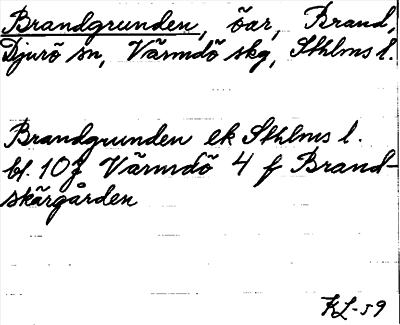 Brandgrunden, öar, Brand,
Djurö sn, Värmdö skg, Sthlms l.
Brandgrunden ek Sthlms l.
bl. 107 Värmdö 4 f Brand-
skärgården
KL-59